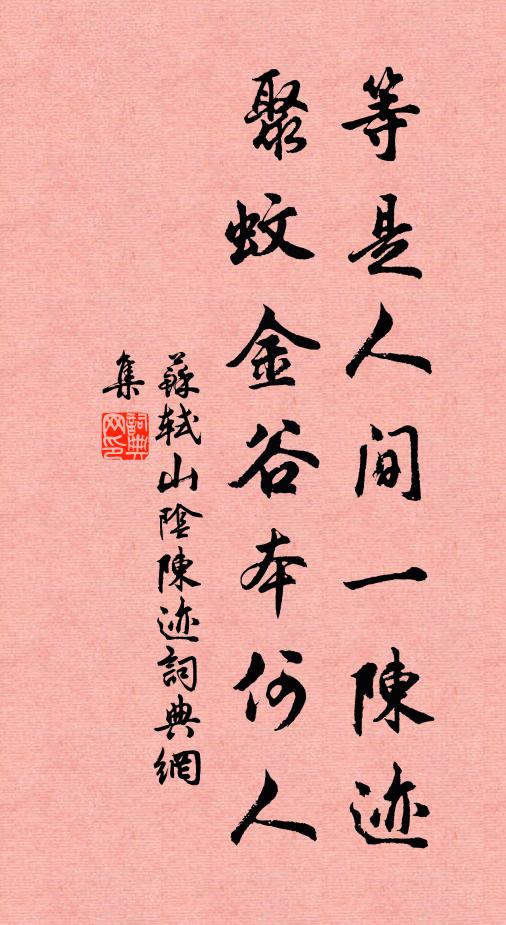 等是人间一陳迹
聚蚊金谷本何人
蘇軾山陰陳迹詞典網
集
詞典
网印